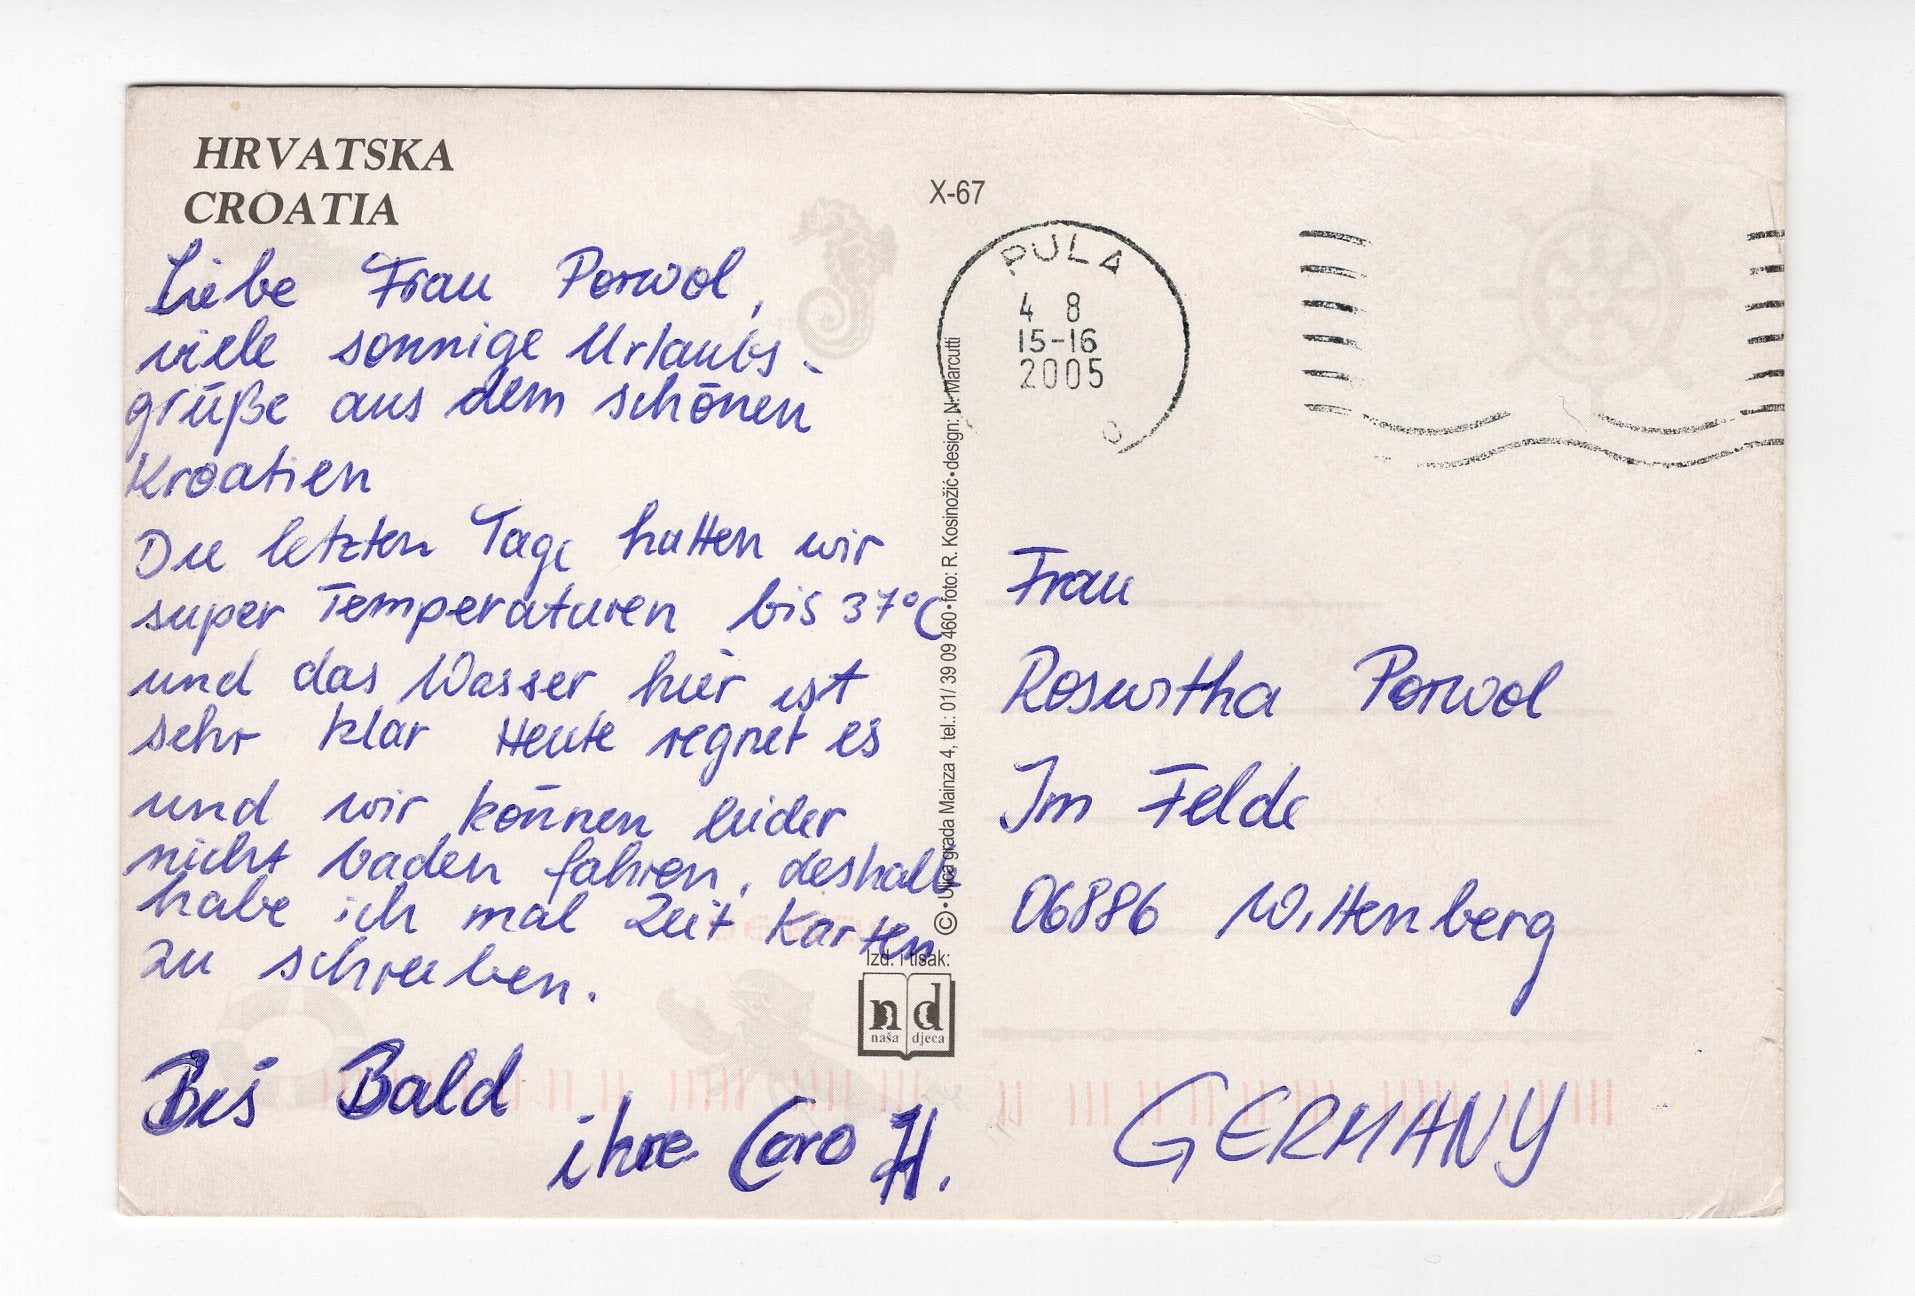 HRVATSKA
CROATIA
Liebe Frau Porwol,
viele sonnige Urlaubs-
grüße aus dem schönen
Kroatien
Die letzten Tage hatten wir
super Temperaturen bis 37°C
und das Wasser hier ist
sehr klar Heute regnet es
und wir können leider
nicht baden fahren, deshalb
habe ich mal Zeit Karten
zu schreiben.
Bis Bald
ihre Caro H.
X-67
PULA
4 8
15-16
2005
© • Ulica grada Mainza 4, tel.: 01/ 39 09 460 • foto: R. Kosinožić • design: N. Marcutti
Izd. i tisak:
nd
naša djeca
Frau
Roswitha Porwol
Im Felde
06886 Wittenberg
GERMANY